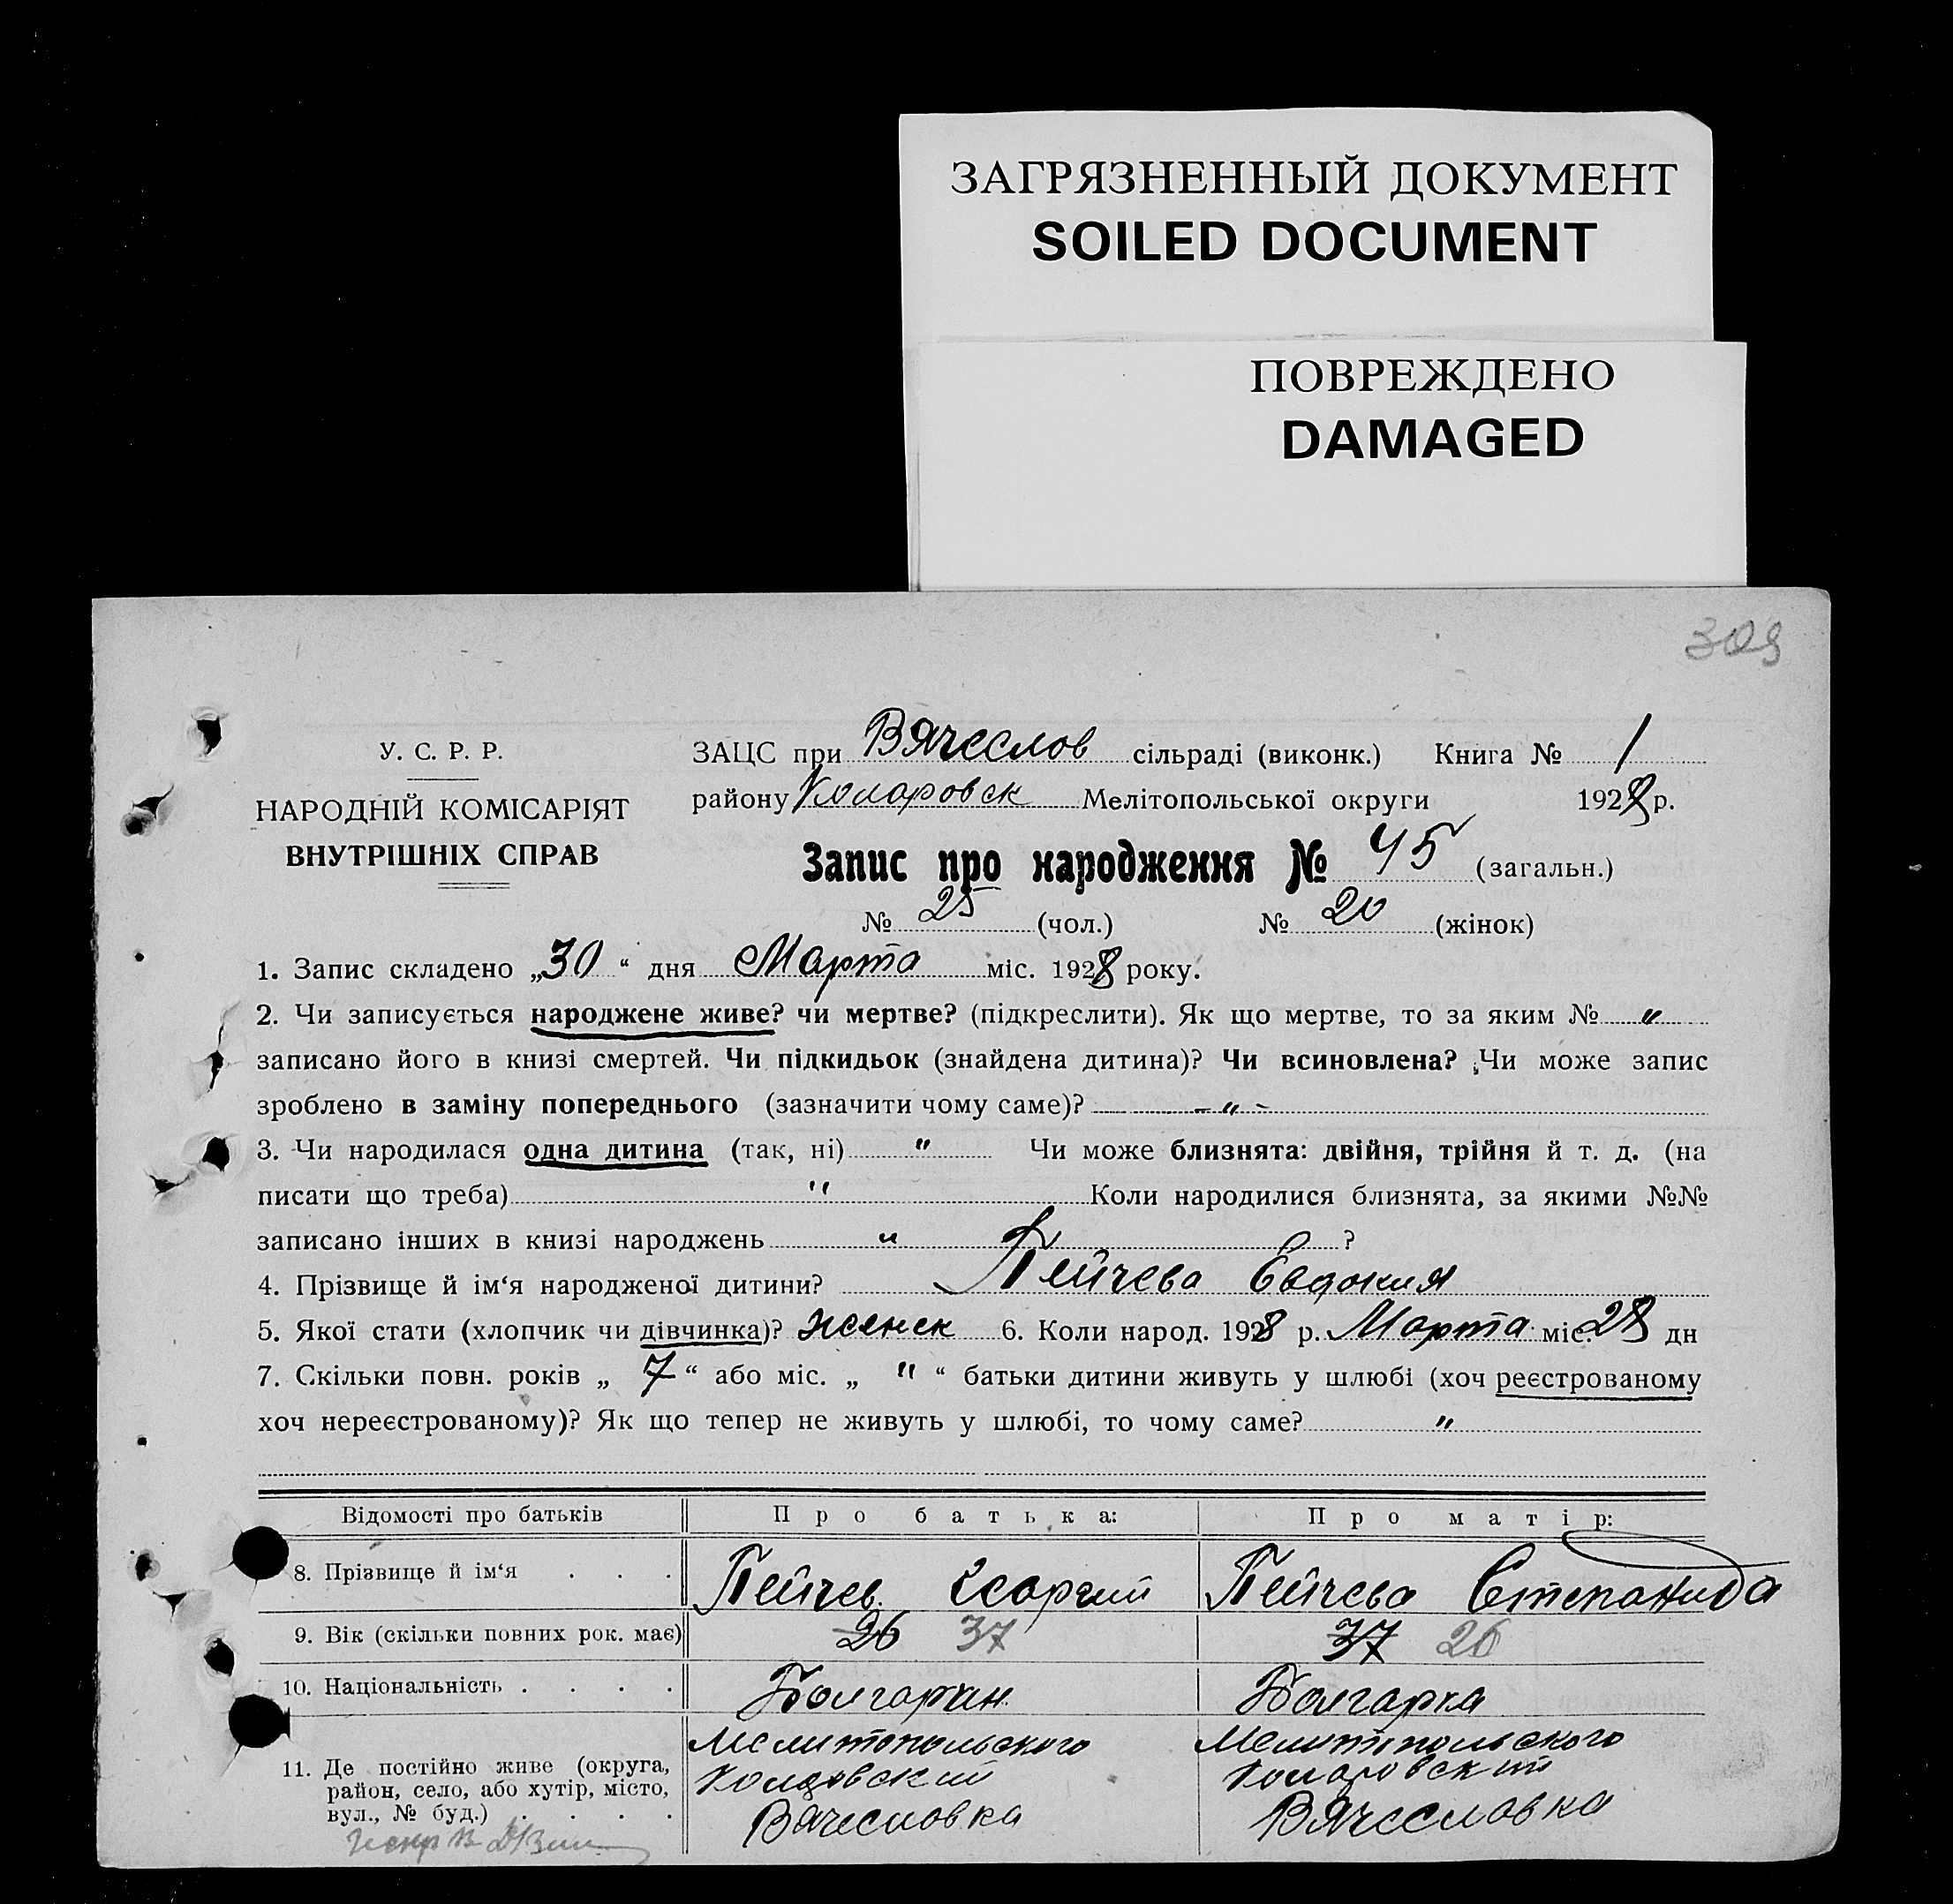 ЗАГРЯЗНЕННЫЙ ДОКУМЕНТ
SOILED DOCUMENT
ПОВРЕЖДЕНО
DAMAGED
309
У. С. Р. Р.
НАРОДНІЙ КОМІСАРІЯТ
ВНУТРІШНІХ СПРАВ
ЗАЦС при Вячеслов сільраді (виконк.) Книга № 1
району Коларовск Мелітопольської округи 1928 р.
Запис про народження № 45 (загальн.)
№ 25 (чол.) № 20 (жінок)
1. Запис складено „30“ дня Марта міс. 1928 року.
2. Чи записується народжене живе? чи мертве? (підкреслити). Як що мертве, то за яким № "
записано його в книзі смертей. Чи підкидьок (знайдена дитина)? Чи всиновлена? Чи може запис
зроблено в заміну попереднього (зазначити чому саме)? - " -
3. Чи народилася одна дитина (так, ні) " Чи може близнята: двійня, трійня й т. д. (на
писати що треба) " Коли народилися близнята, за якими №№
записано інших в книзі народжень " ?
4. Прізвище й ім‘я народженої дитини? Пейчева Евдокия
5. Якої стати (хлопчик чи дівчинка)? женск 6. Коли народ. 1928 р. Марта міс. 28 дн
7. Скільки повн. років „ 7 “ або міс. „ " “ батьки дитини живуть у шлюбі (хоч реєстрованому
хоч нереєстрованому)? Як що тепер не живуть у шлюбі, то чому саме? "
Відомості про батьків Про батька: Про матір:
8. Прізвище й ім‘я . . . Пейчев Георгий Пейчева Степанида
9. Вік (скільки повних рок. має) 26 37 37 26
10. Національність . . . . Болгарин Болгарка
11. Де постійно живе (округа, район, село, або хутір, місто, вул., № буд.) . . . .
Мелитопольского Мелитопольского
Коларовский
Вячесловка Вячесловка